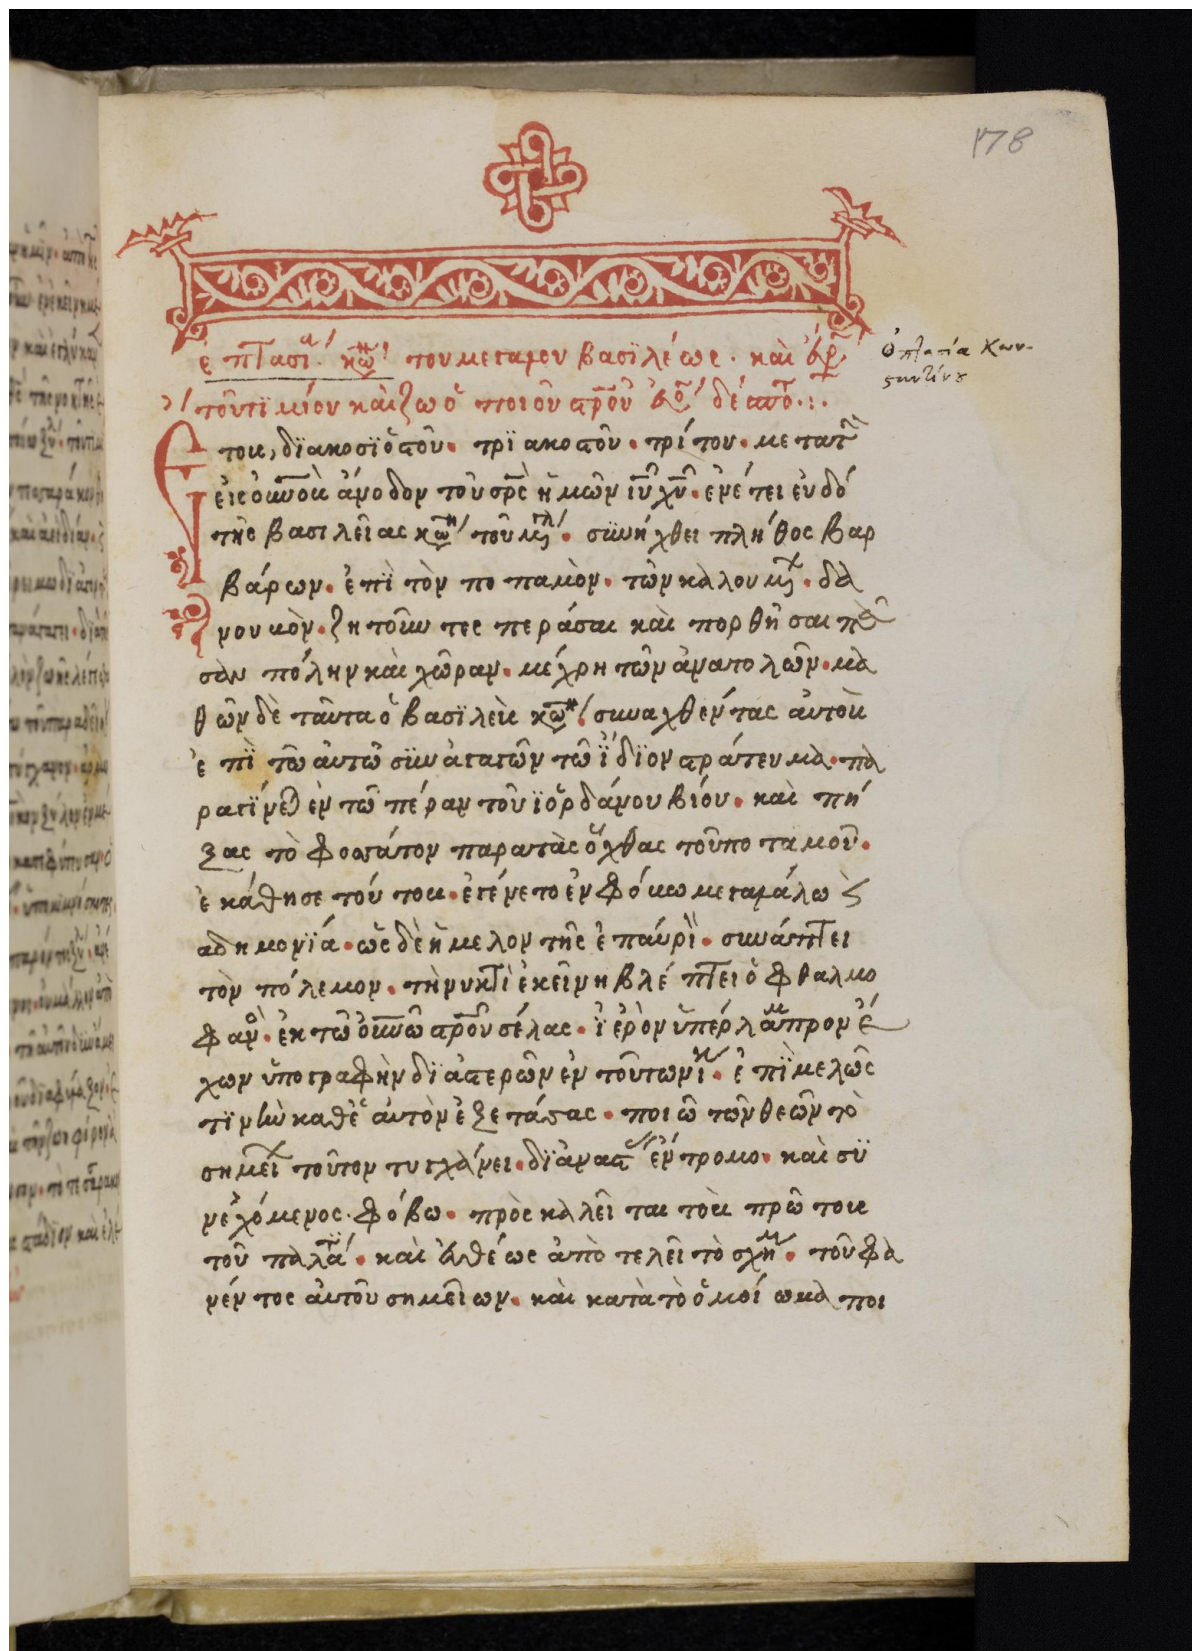 178
ἐπτασία κων του μεγάλου βασϊλέως · και εὕρ
Ὀπτασία Κων-
σταντίνου
τοῦ τϊμίου καὶ ζωοποιοῦ σταυροῦ
ἔτους διακοσϊοστοῦ · τρϊακοστοῦ · τρίτου · μετα τὴν
εἰς οὐνοὺς ἄνοδον τοῦ σρς ἡμῶν ιυ χυ · ἐν ἔτει ἑνδό
της βασιλείας κων τοῦ μεγάλου · σϋνήχθει πλήθος βαρ
βάρων · ἐπὶ τὸν ποταμὸν · τῶν καλουμεν · δα
νουκὸν · ζητοῦντες περάσαι καὶ πορθῆσαι πᾶ
σαν πόλην καὶ χῶραν · μέχρη τῶν ἀνατολῶν · μα
θῶν δὲ ταῦτα ὁ βασϊλεὺς κων · συναχθέντας αὐτοὺς
ἐπϊ τῶ αὐτῶ σϋν ἀγαγῶν τῶ ἴδϊον στράτευμα · πα
ραγϊνετ ἐν τῶ πέραν τοῦ ϊορδάνου βιόν · καὶ πή
ξας τὸ φοσάτον παρα τὰς ὄχθας τοῦ ποταμοῦ ·
ἐκάθησε τούτου · ἐγένετο ἐν φόβω μεγάλω κ
αδημονϊά · ὡς δὲ ἤμελον τῆς ἐπαύρϊ · συνάπτει
τὸν πόλεμον · τὴ νυκτὶ ἐκείνη βλέπτει ὀφθαλμο
φαν · ἐκ τῶ οὐνῶ στροῦ σέλας · ϊερὸν ὑπέρλαμπρον ἔ
χων ὑπογραφὴν δϊ ἀστερῶν ἐν τοῦτω νϊ · ἐπϊμελῶς
τϊνὼ καθ᾽ ἑαὐτὸν ἐξετάσας · ποιῶ τῶν θεῶν τὸ
σημεῖ τοῦτον τυγχάνει · δϊαναστ ἔντρομο · καὶ σϋ
νεχόμενος · φόβω · πρὸς καλεῖται τοὺς πρῶτους
τοῦ παλατ · καὶ εὐθέως ἀπὸ τελεῖ τὸ σχῆμ · τοῦ φα
νέντος αὐτοῦ σημεῖων · καὶ κατὰ τὸ ὁμοίωμα ποι